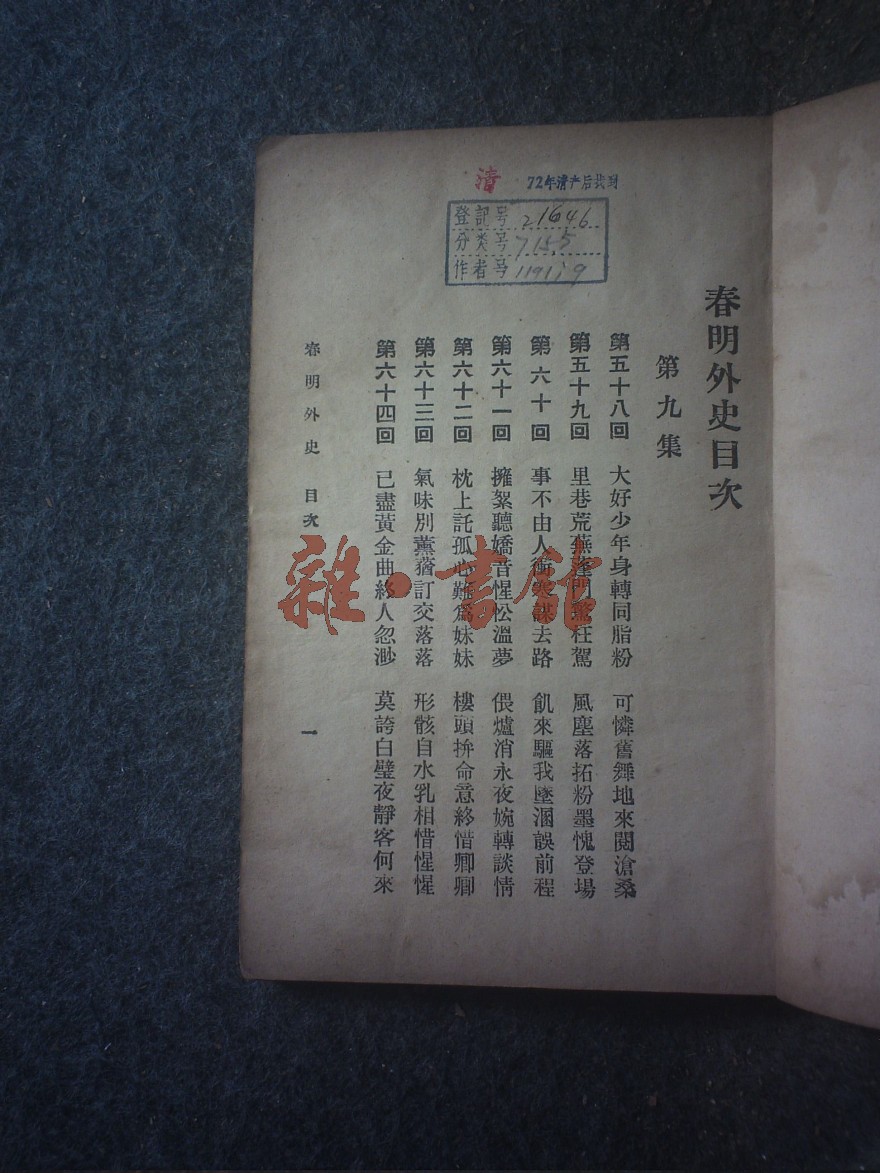 清 72年清产后找到
登記号 21646
分类号 715.5
作者号 1191;9
春明外史目次
第九集
第五十八回 大好少年身轉同脂粉 可憐舊舞地來閱滄桑
第五十九回 里巷荒蕪蓬門驚枉駕 風塵落拓粉墨愧登場
第六十回 事不由人衝寒謀去路 飢來驅我墜溷誤前程
第六十一回 擁絮聽嬌音惺忪溫夢 偎爐消永夜婉轉談情
第六十二回 枕上託孤心難為妹妹 樓頭拚命意終惜卿卿
第六十三回 氣味別薰蕕訂交落落 形骸自水乳相惜惺惺
第六十四回 已盡黃金曲終人忽渺 莫誇白璧夜靜客何來
春明外史 目次 一
雜·書館